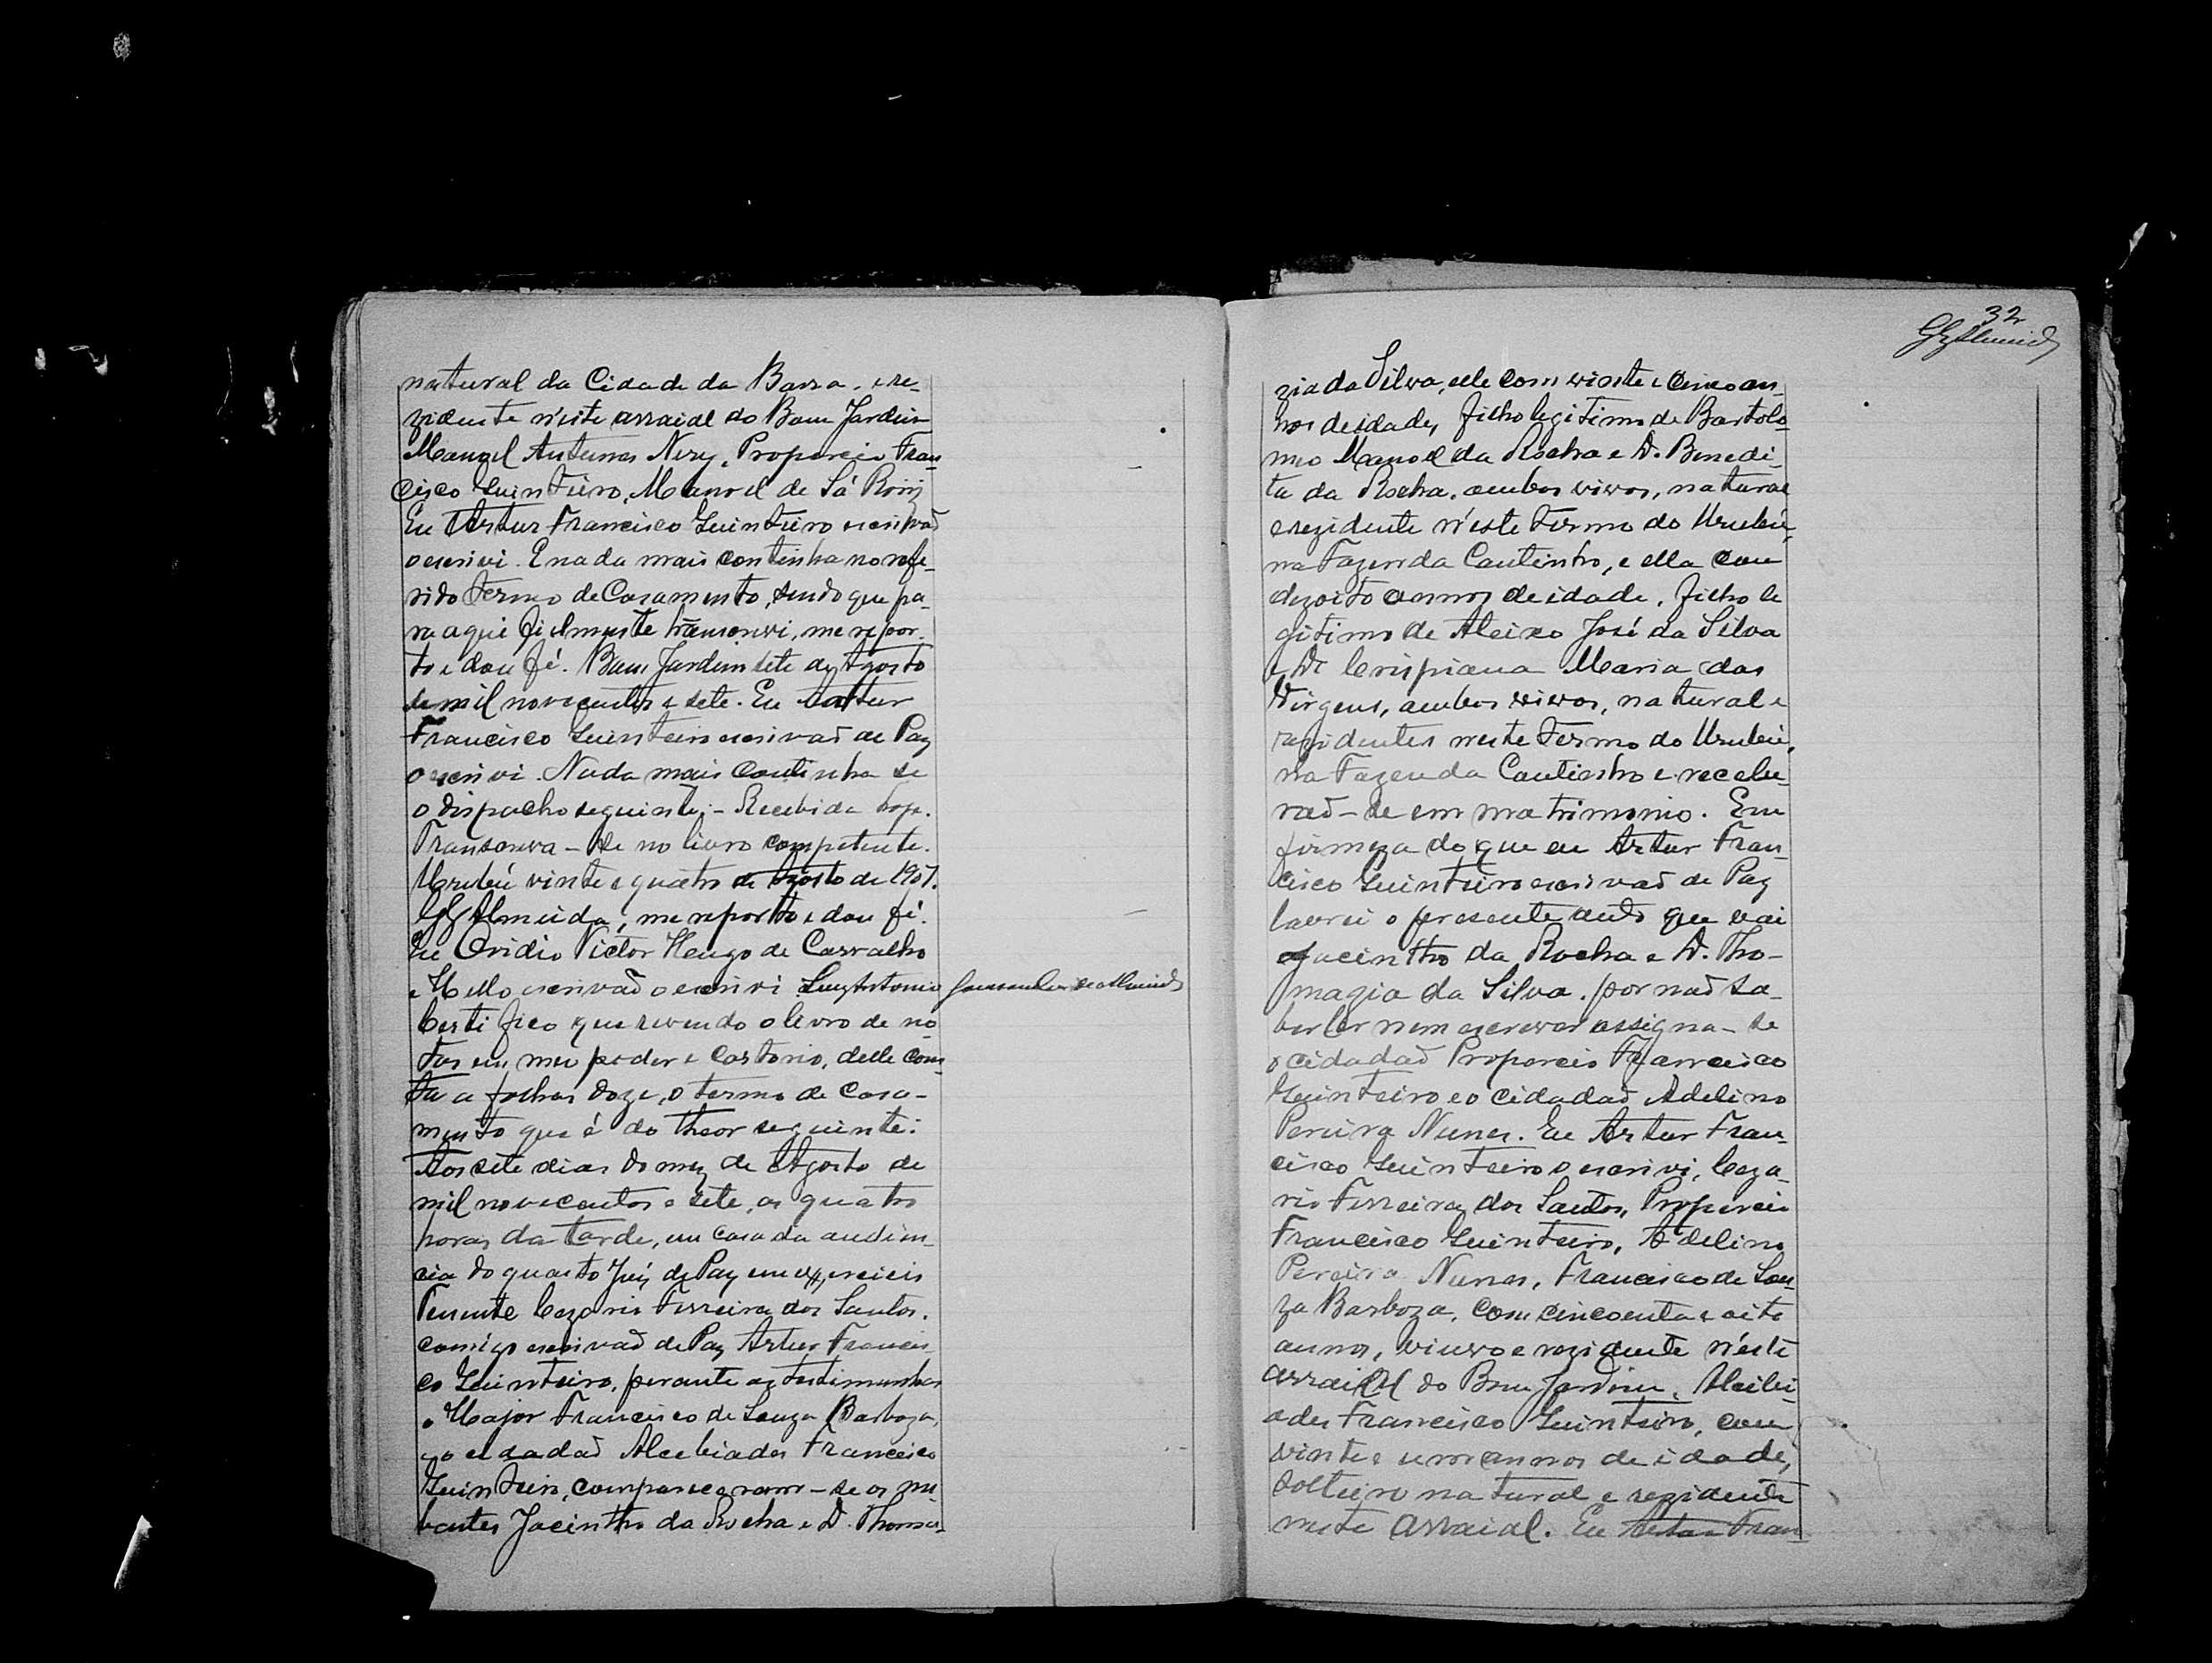 natural da Cidade da Barra. e re-
zidente n'este arraial do Bom Jardim
Manoel Antunes Nery, Propercio Fran-
cisco Guinteiro, Manoel de Sá Roriz
Eu Artur Francisco Guinteiro escrivaõ
o escrivi. E nada mais continha no refe-
rido termo de Casamento, sendo que pa-
ra aqui fielmente transcrevi, me repor-
to e dou fé. Bom Jardim sete de Agosto
de mil novecentos e sete. Eu Artur
Francisco Guinteiro escrivaõ de Paz
o escrivi. Nada mais continha se
o dispacho seguinte:- Recebida hoje.
Transcreva-se no livro competente.
Urubú vinte e quatro de Agosto de 1907.
Almeida, me reporto e dou fé.
Eu Ovidio Victor Hugo de Carvalho
e Mello escrivaõ o escrivi. Luiz Antonio
Certifico que revendo o livro de no-
tas em meu poder e Cartorio, delle cons-
ta a folhas doze, o termo de Casa-
mento que é do theor seguinte:
Aos sete dias do mez de Agosto de
mil novecentos e sete, as quatro
horas da tarde, em casa da audien-
cia do quarto Juiz de Paz em exercicio
Tenente Cezario Ferreira dos Santos.
comigo escrivaõ de Paz Artur Francis-
co Guinteiro, perante as testimunhas
o Major Francisco de Souza Barboza,
e o cidadaõ Alcebiades Francisco
Guinteiro, comparecerom-se os nu-
bentes Jacintho da Rocha e D. Thoma-
32
zia da Silva, elle com vinte e cinco an-
nos de idade, filho legitimo de Bartolo-
meo Manoel da Rocha e D. Benedi-
ta da Rocha, ambos vivos, natural
e rezidente n'este termo do Urubú,
na Fazenda Cantinho, e ella com
dezoito annos de idade, filho le
gitimo de Aleixo José da Silva
e D. Crispiana Maria das
Virgens, ambos vivos, natural e
rezidentes neste termo do Urubú,
na Fazenda Cantinho e recebe-
raõ-se em matrimonio. Em
firmeza do que eu Artur Fran-
cisco Guinteiro escrivaõ de Paz
lavrei o presente auto que vai
Jacintho da Rocha e D. Tho-
mazia da Silva. por naõ sa-
ber ler nem escrever assigna-se
o cidadaõ Propercio Francisco
Guinteiro e o cidadaõ Adelino
Pereira Nunes. Eu Artur Fran-
cisco Guinteiro o escrivi, Ceza-
rio Ferreira dos Santos, Propercio
Francisco Guinteiro, Adelino
Pereira Nunes, Francisco de Sou-
za Barboza, com cincoenta e oito
annos, viuvo e rezidente n'este
arraial do Bom Jardim, Alcibi-
ades Francisco Guinteiro, com
vinte e um annos de idade,
solteiro natural e rezidente
neste Arraial. Eu Artur Fran-